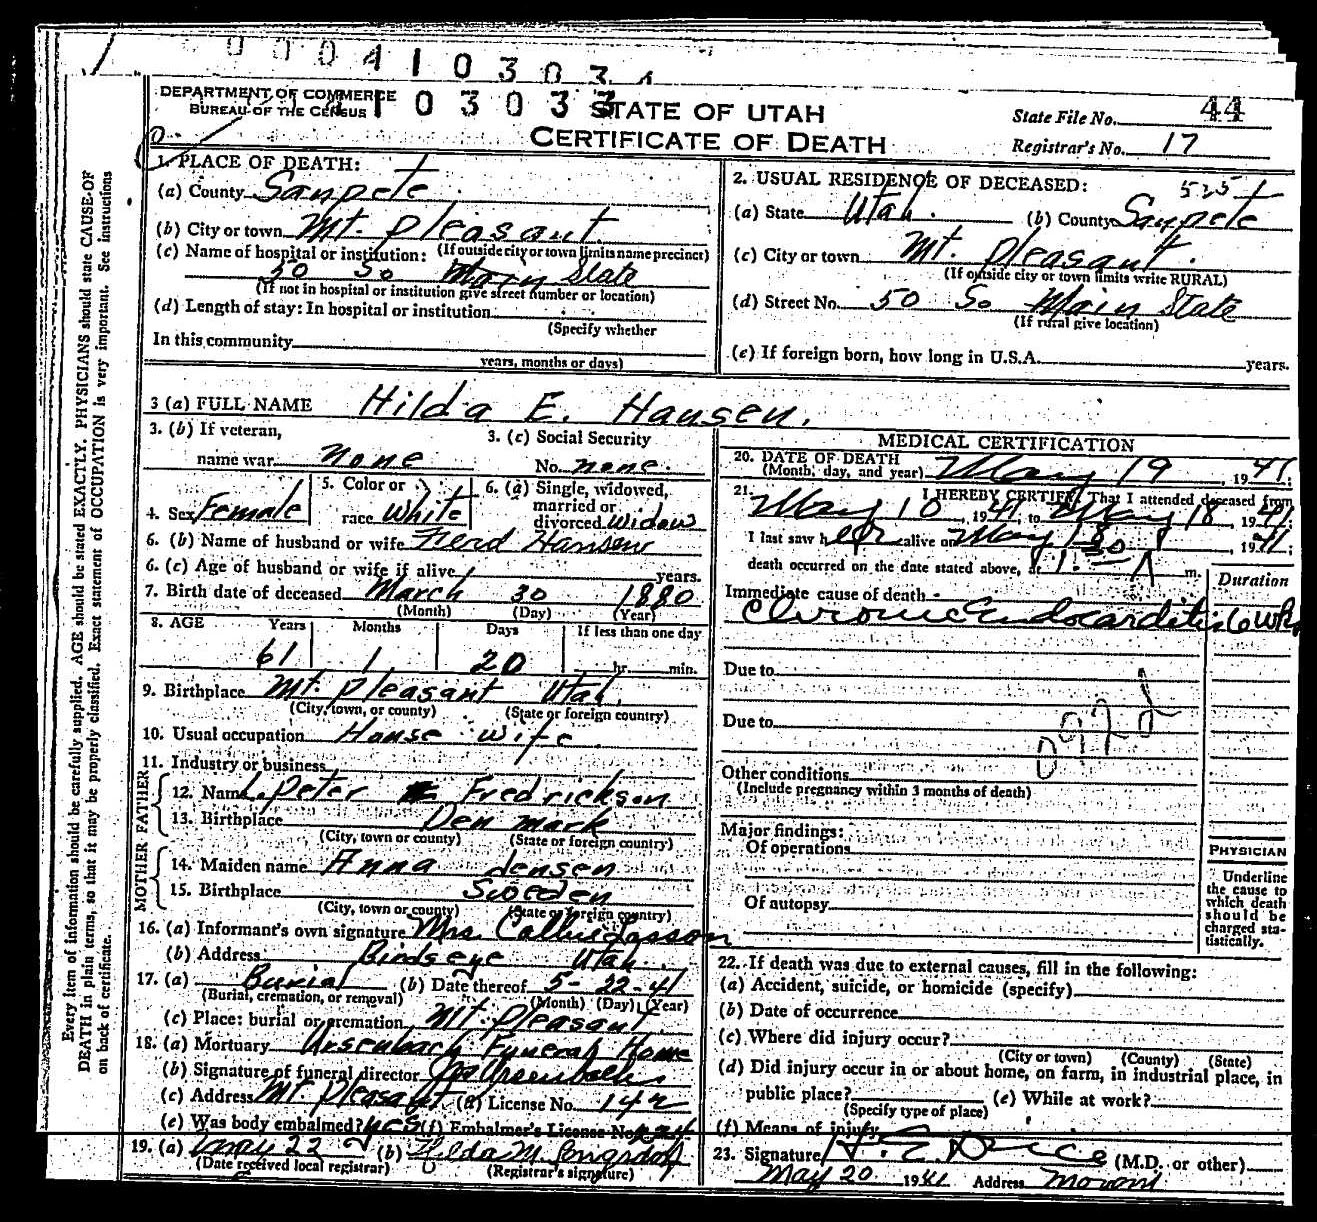 0004103034
DEPARTMENT OF COMMERCE
BUREAU OF THE CENSUS
103033
STATE OF UTAH
CERTIFICATE OF DEATH
State File No. 44
Registrar's No. 17
1. PLACE OF DEATH:
(a) County Sanpete
(b) City or town Mt. Pleasant
(If outside city or town limits name precinct)
(c) Name of hospital or institution:
50 So Main State
(If not in hospital or institution give street number or location)
(d) Length of stay: In hospital or institution
(Specify whether
In this community
years, months or days)
2. USUAL RESIDENCE OF DECEASED: 525
(a) State Utah. (b) County Sanpete
(c) City or town Mt. Pleasant.
(If outside city or town limits write RURAL)
(d) Street No. 50 So Main State
(If rural give location)
(e) If foreign born, how long in U.S.A. years.
3 (a) FULL NAME Hilda E. Hansen.
3. (b) If veteran,
name war none
3. (c) Social Security
No. none.
4. Sex Female
5. Color or
race White
6. (a) Single, widowed,
married or
divorced widow
6. (b) Name of husband or wife Ferd Hansen
6. (c) Age of husband or wife if alive years.
7. Birth date of deceased March 30 1880
(Month) (Day) (Year)
8. AGE Years Months Days If less than one day
61 1 20 hr. min.
9. Birthplace Mt. Pleasant Utah.
(City, town, or county) (State or foreign country)
10. Usual occupation House wife
11. Industry or business
FATHER
12. Name L. Peter Fredrickson
13. Birthplace Denmark
(City, town or county) (State or foreign country)
MOTHER
14. Maiden name Anna Jensen
15. Birthplace Sweden
(City, town or county) (State or foreign country)
16. (a) Informant's own signature Mrs. Callie Lasson
(b) Address Birdseye Utah.
17. (a) Burial (b) Date thereof 5-22-41
(Burial, cremation, or removal) (Month) (Day) (Year)
(c) Place: burial or cremation Mt. Pleasant
18. (a) Mortuary Ursenbach Funeral Home
(b) Signature of funeral director Ursenbach
(c) Address Mt Pleasant (d) License No. 142
(e) Was body embalmed? yes (f) Embalmer's License No.
19. (a) May 22 (b) Hilda M.
(Date received local registrar) (Registrar's signature)
MEDICAL CERTIFICATION
20. DATE OF DEATH
(Month, day, and year) May 19, 1941;
21. I HEREBY CERTIFY, That I attended deceased from
May 10, 1941 to May 18 1941;
I last saw her alive on May 18, 1941;
death occurred on the date stated above, at 1:30 A m.
Duration
Immediate cause of death
Chronic Endocarditis 6 wks
Due to
Due to
092d
Other conditions
(Include pregnancy within 3 months of death)
Major findings:
Of operations
Of autopsy
PHYSICIAN
Underline
the cause to
which death
should be
charged sta-
tistically.
22. If death was due to external causes, fill in the following:
(a) Accident, suicide, or homicide (specify)
(b) Date of occurrence
(c) Where did injury occur?
(City or town) (County) (State)
(d) Did injury occur in or about home, on farm, in industrial place, in
public place? (e) While at work?
(Specify type of place)
(f) Means of injury
23. Signature (M.D. or other)
May 20 1941 Address Moroni
Every item of information should be carefully supplied. AGE should be stated EXACTLY. PHYSICIANS should state CAUSE OF
DEATH in plain terms, so that it may be properly classified. Exact statement of OCCUPATION is very important. See instructions
on back of certificate.